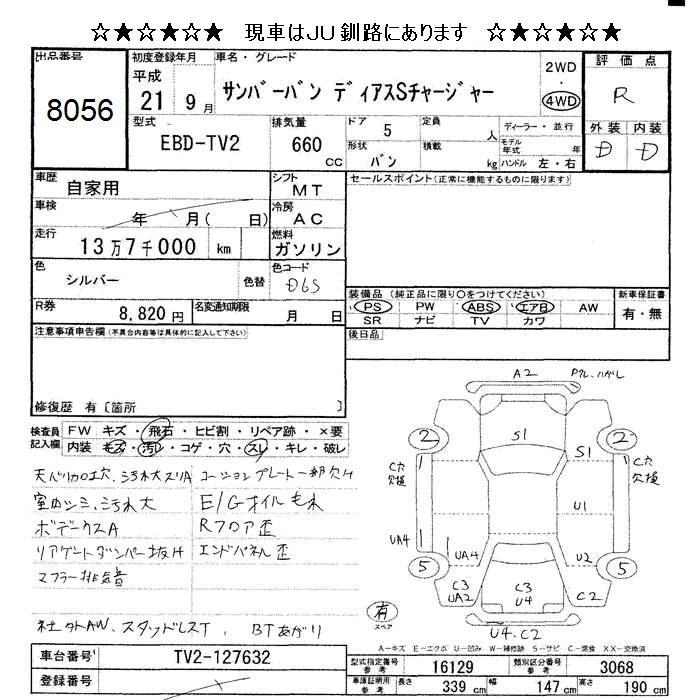 ☆★☆★☆★ 現車はJU釧路にあります ☆★☆★☆★
出品番号
8056
初度登録年月
平成
21 9月
車名・グレード
サンバーバン ディアスSチャージャー
2WD
・
4WD
評価点
R
外装 内装
D D
型式
EBD-TV2
排気量
660
CC
ドア 5
形状
バン
定員
人
積載
kg
ディーラー・並行
モデル年式 年
ハンドル 左・右
車歴
自家用
シフト
MT
車検
年 月( 日)
冷房
AC
走行
13万7千000 km
燃料
ガソリン
色
シルバー
色替
色コード
D6S
R券
8,820円
名変通知期限
月 日
セールスポイント(正常に機能するものに限ります)
装備品(純正品に限り○をつけてください)
PS PW ABS エアB AW
SR ナビ TV カワ
新車保証書
有・無
後日品
注意事項申告欄(不具合内容等は具体的に記入して下さい)
修復歴 有〔箇所 〕
検査員記入欄
FW キズ・飛石・ヒビ割・リペア跡・×要
内装 キズ・汚レ・コゲ・穴・スレ・キレ・破レ
天バリ加工穴、汚れ大スリA コーションプレート一部欠け
室内シミ、汚れ大 E/Gオイルもれ
ボデークスA Rフロア歪
リアゲートダンパー抜け エンドパネル歪
マフラー排気音
社外AW、スタッドレスT, BTあがり
A2
S1
2
2
S1
C穴
欠損
C穴
欠損
U1
UA4
UA4
U2
5
5
C3
UA2
C3
U4
C2
U4.C2
有
スペア
A-キズ E-エクボ U-凹み W-補修跡 S-サビ C-腐食 XX-交換済
車台番号
TV2-127632
登録番号
型式指定番号
参考
16129
類別区分番号
参考
3068
車庫証明用
参考
長さ 339 cm 幅 147 cm 高さ 190 cm